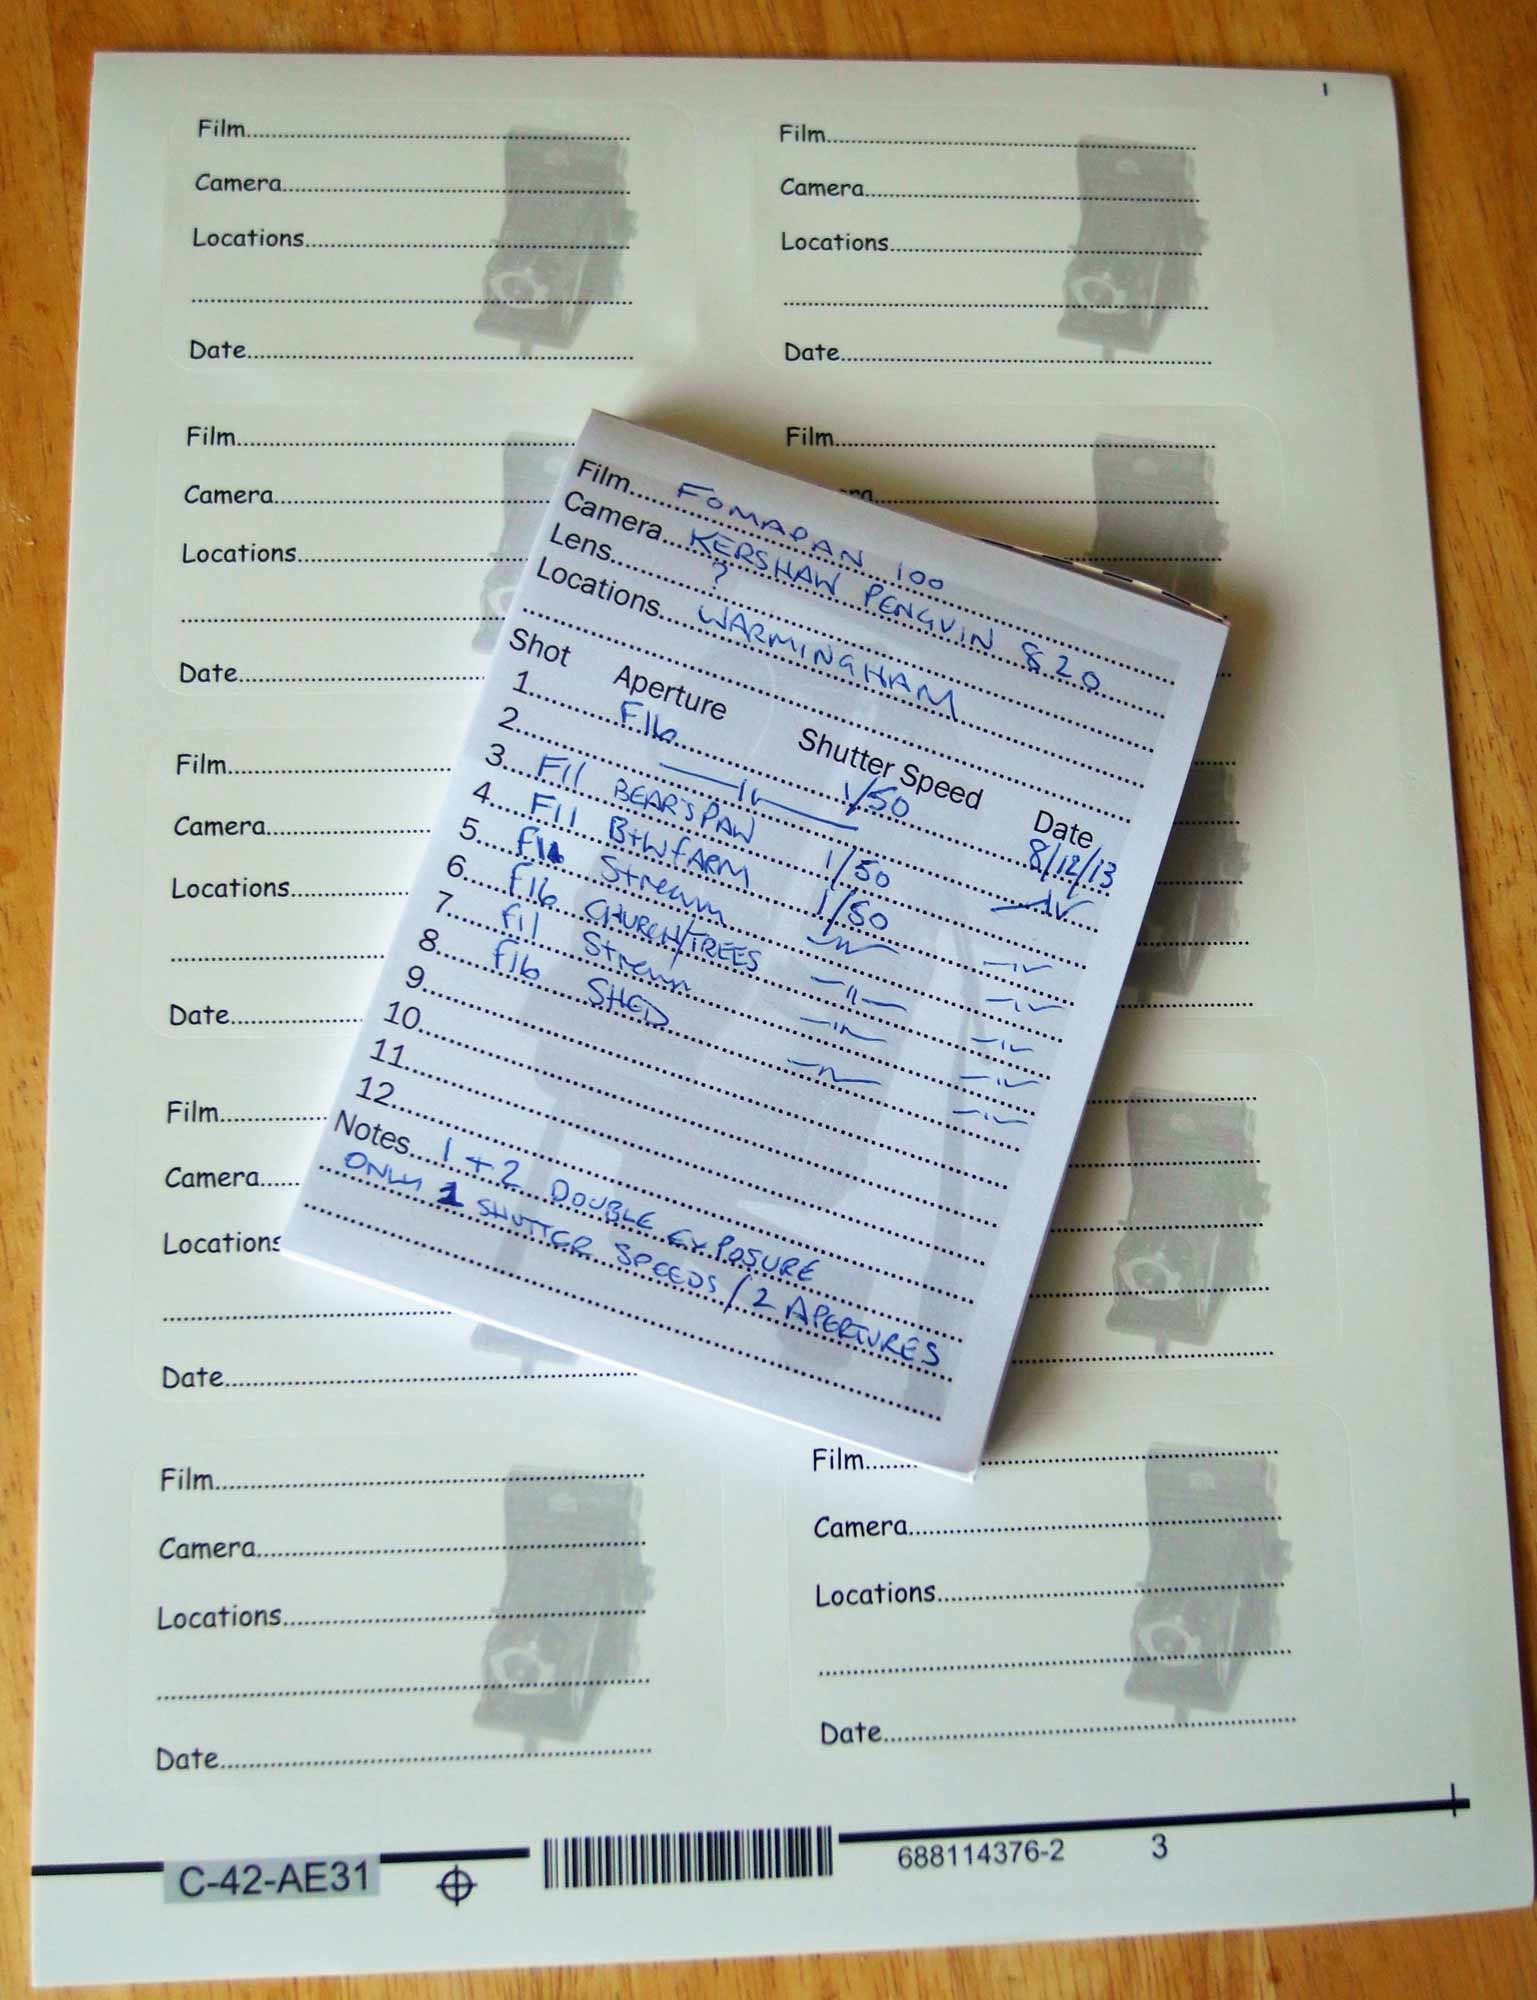 Film..........
Camera..........
Locations..........
Date..........
Film..........
Camera..........
Locations..........
Date..........
Film..........
Camera..........
Locations..........
Date..........
Film..........
Film..........
Camera..........
Locations..........
Date..........
Film..........
Camera..........
Locations..........
Date..........
Film..........
Camera..........
Locations..........
Date..........
Film..........
Camera..........
Locations..........
Date..........
Film.... FOMAPAN 100
Camera... KERSHAW PENGUIN 820
Lens.... ?
Locations... WARMINGHAM
Shot Aperture Shutter Speed Date
1.... F16 1/50 8/12/13
2.... —"— —"—
3.... F11 BEAR'S PAW 1/50 —"—
4.... F11 B+W FARM 1/50 —"—
5.... Stream —"— —"—
6.... F16 CHURCH/TREES —"— —"—
7.... F11 Stream —"— —"—
8.... F16 SHED —"— —"—
9....
10....
11....
12....
Notes... 1 + 2 DOUBLE EXPOSURE
ONLY 1 SHUTTER SPEEDS / 2 APERTURES
C-42-AE31 688114376-2 3